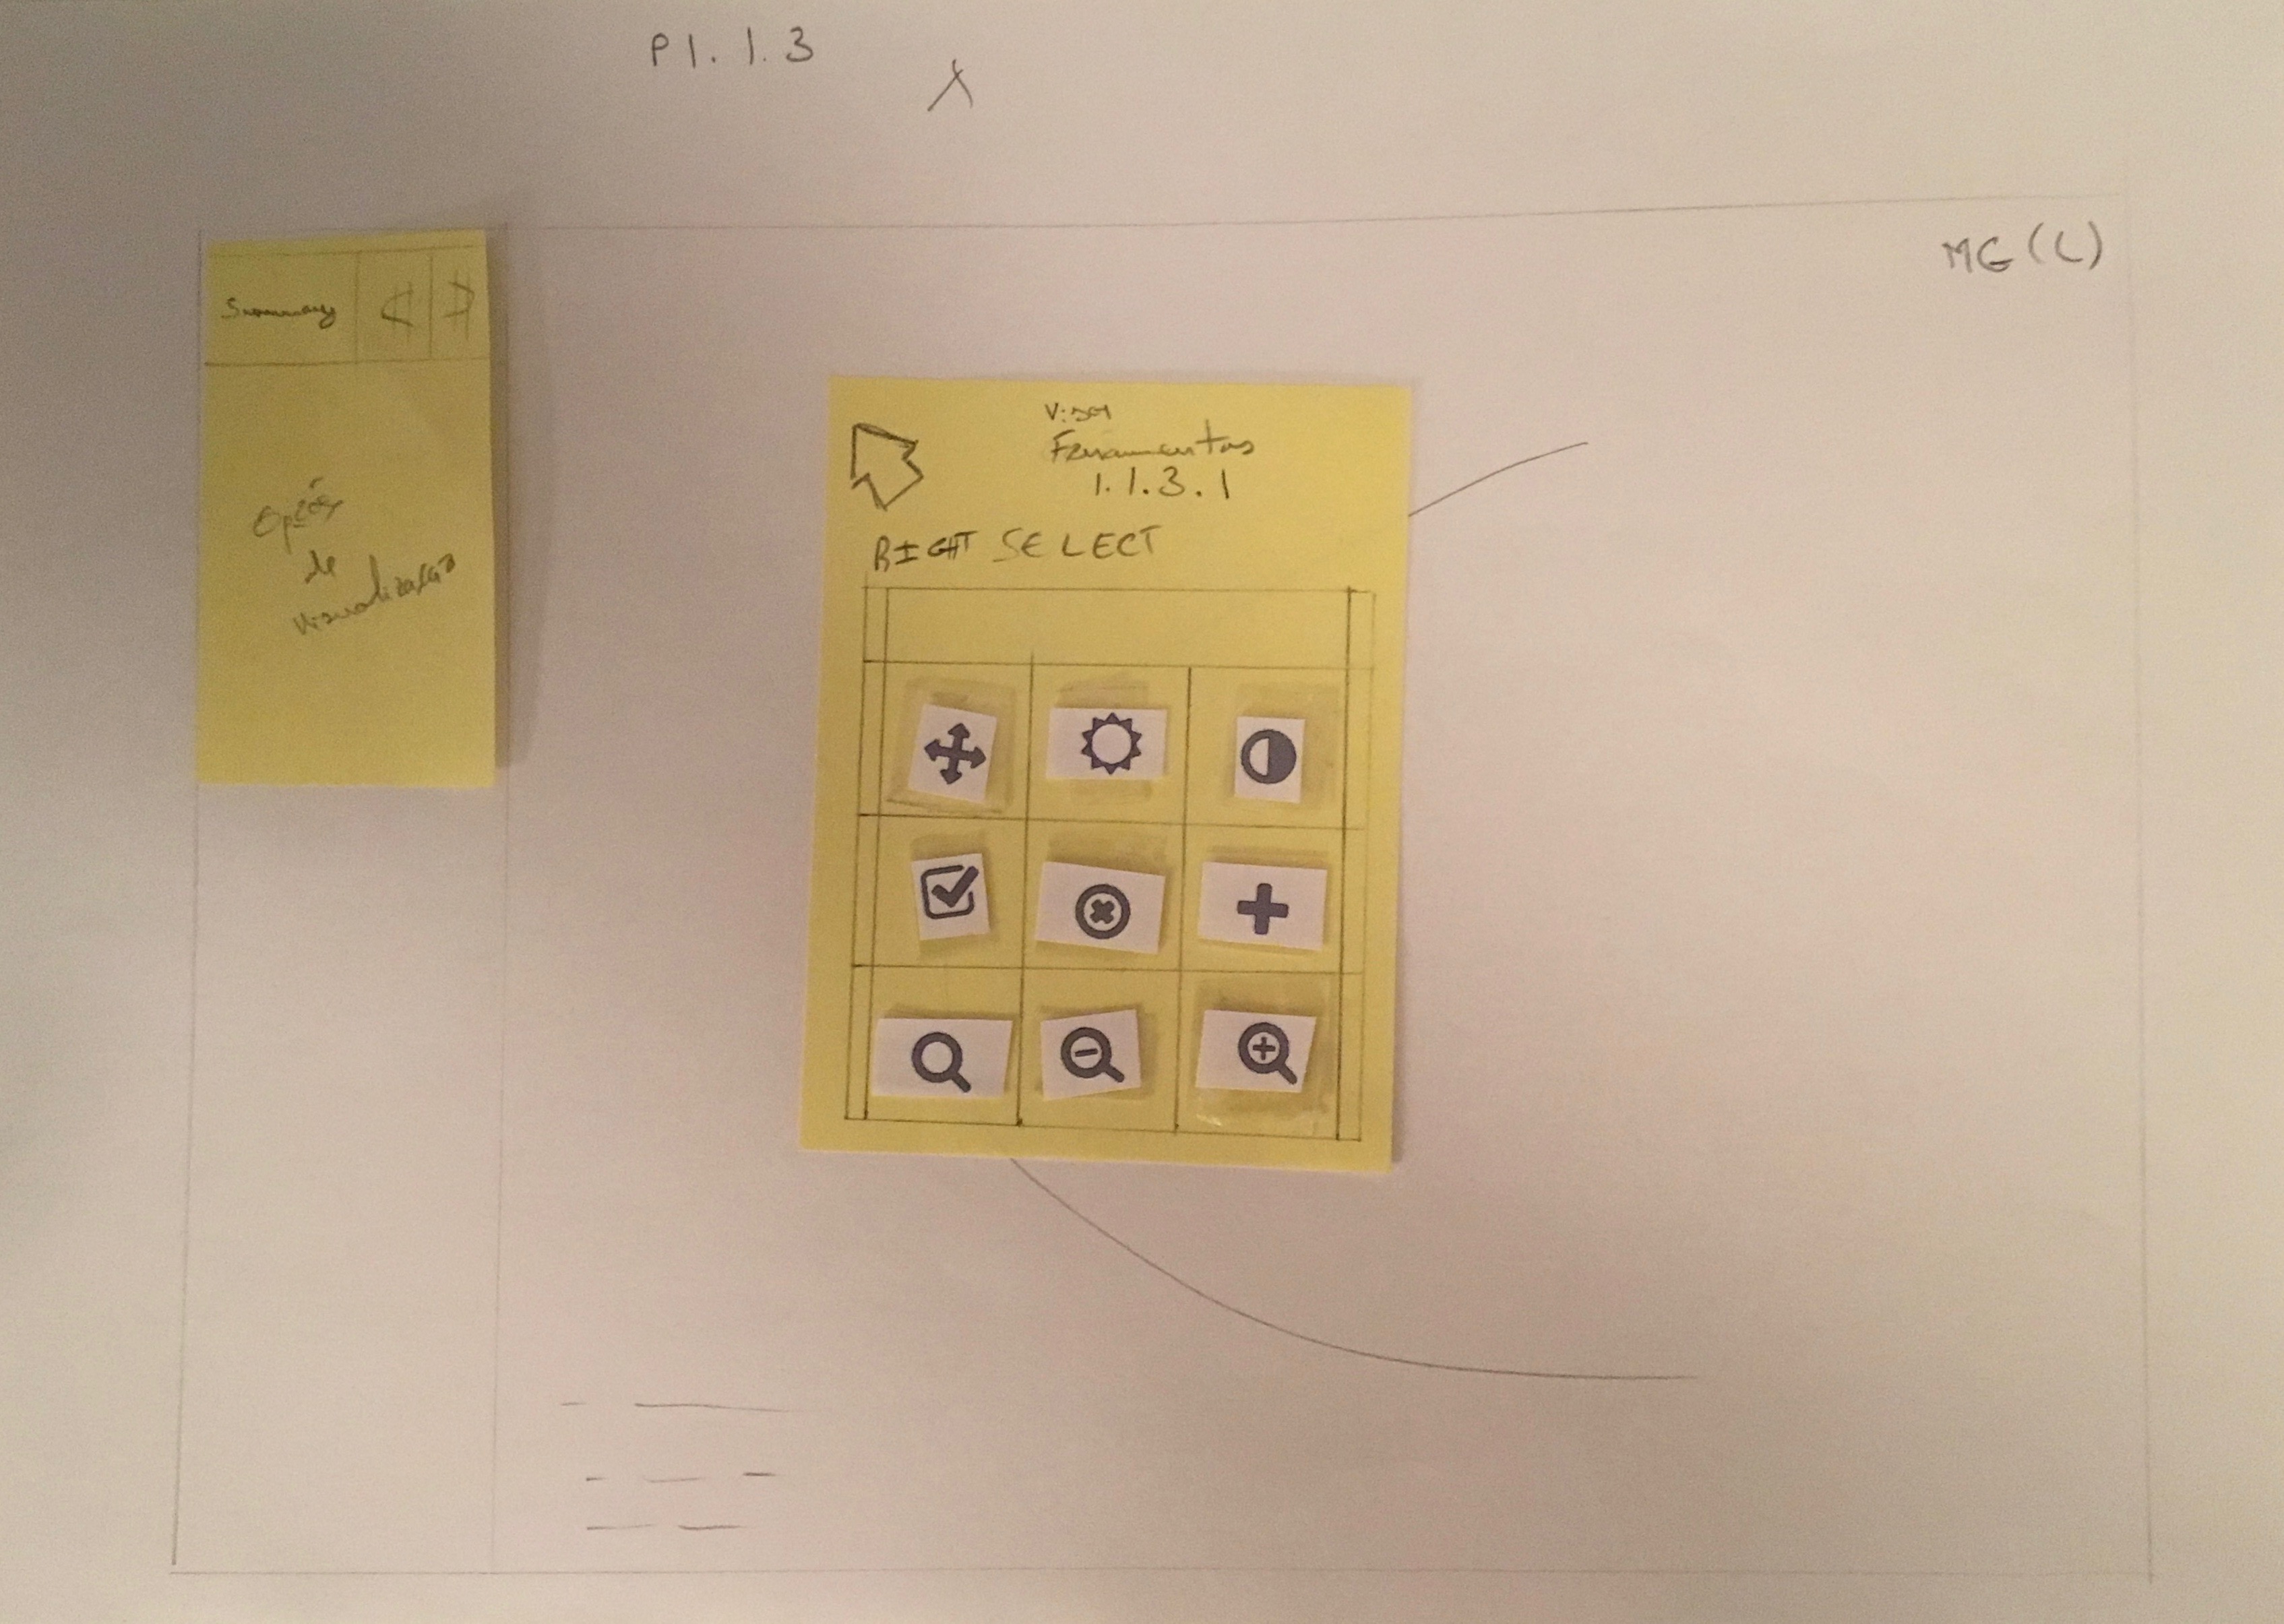 P1.1.3
X
MG (L)
Summary < >
Opções
de
visualização
Visor
Ferramentas
1.1.3.1
RIGHT SELECT